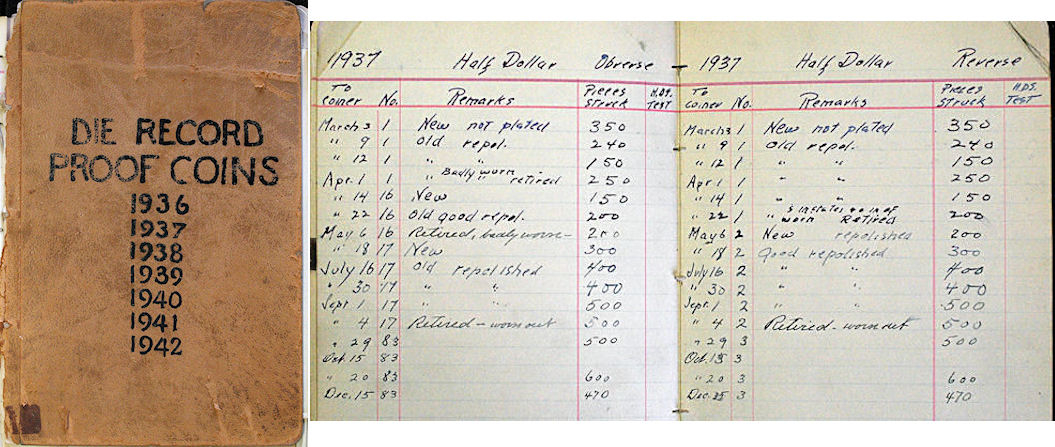 DIE RECORD
PROOF COINS
1936
1937
1938
1939
1940
1941
1942
1937 Half Dollar Obverse
To Coiner No. Remarks Pieces Struck H.D.S. TEST
March 3 1 New not plated 350
" 9 1 Old repol. 240
" 12 1 " " 150
Apr. 1 1 " Badly worn " retired 250
" 14 16 New 150
" 22 16 Old good repol. 200
May 6 16 Retired, badly worn - 200
" 18 17 New 300
July 16 17 Old repolished 400
" 30 17 " " 400
Sept. 1 17 " " 500
" 4 17 Retired - worn out 500
" 29 83 500
Oct. 15 83
" 20 83 600
Dec. 15 83 470
1937 Half Dollar Reverse
To Coiner No. Remarks Pieces Struck H.D.S. TEST
March 3 1 New not plated 350
" 9 1 Old repol. 240
" 12 1 " " 150
Apr. 1 1 " " 250
" 14 1 " " 150
" 22 1 " worn Retired 200
May 6 2 New repolished 200
" 18 2 Good repolished 300
July 16 2 " " 400
" 30 2 " " 400
Sept. 1 2 " " 500
" 4 2 Retired - worn out 500
" 29 3 500
Oct. 15 3
" 20 3 600
Dec. 3 470